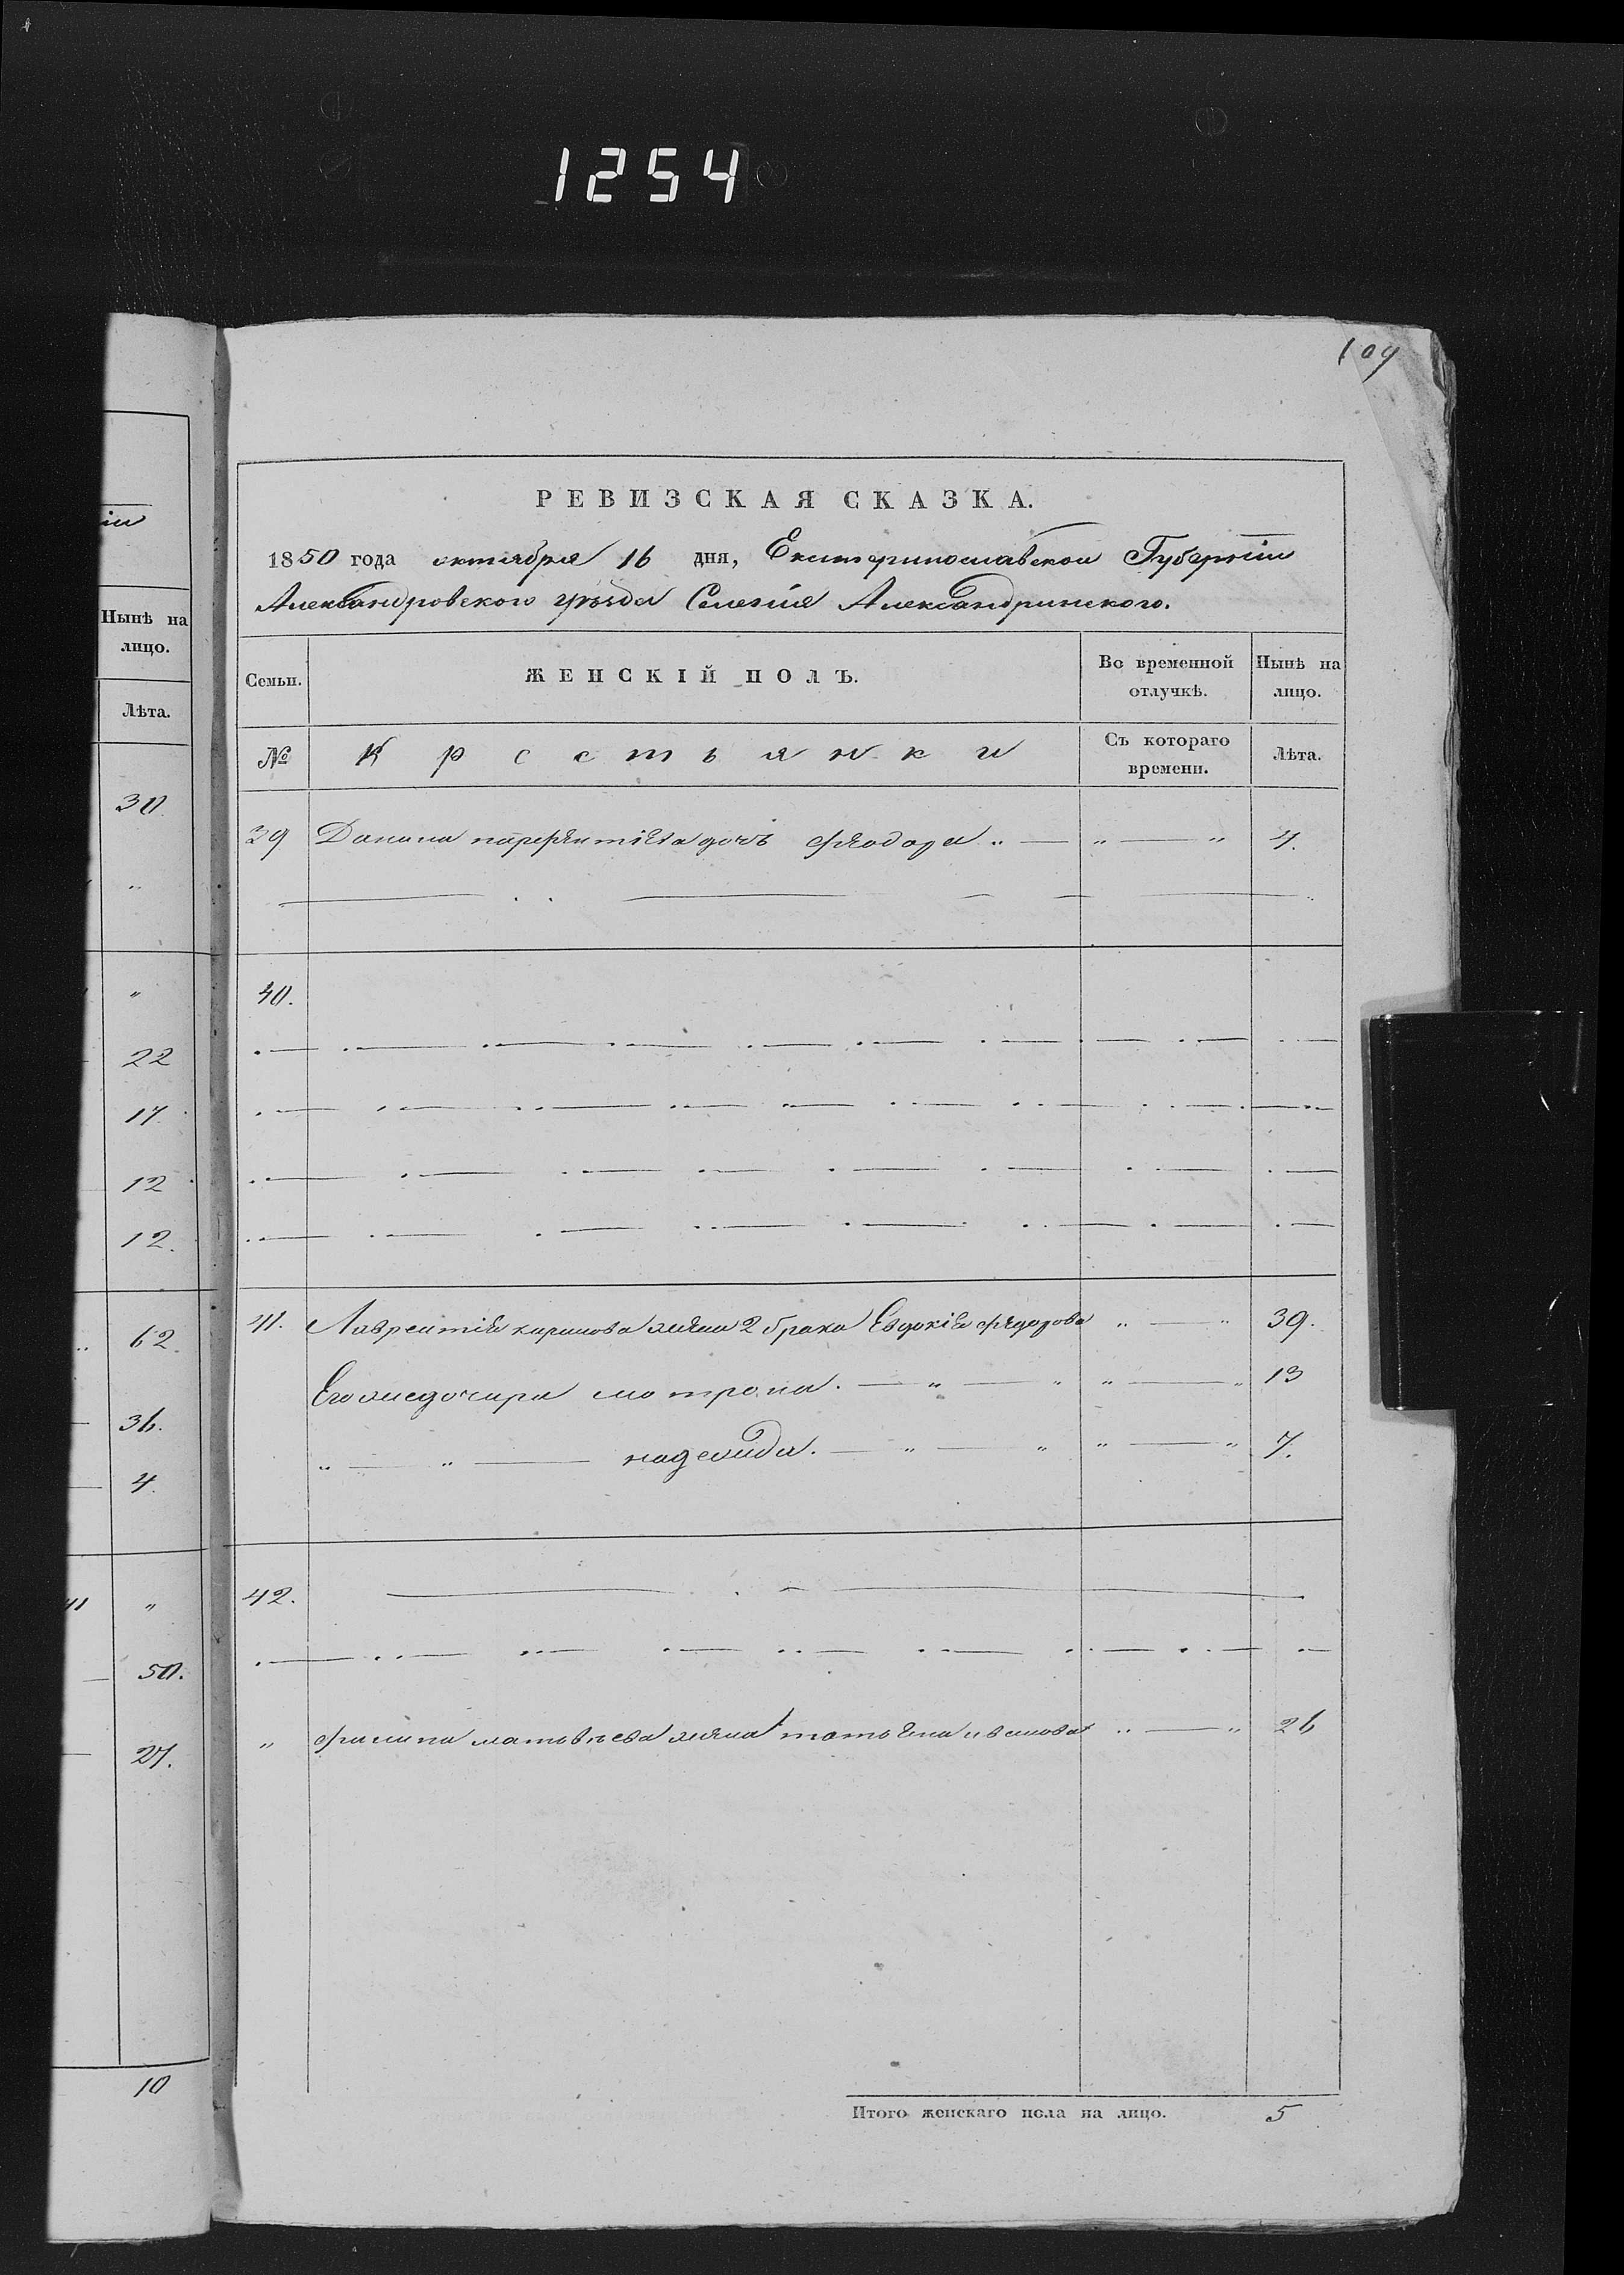 1254
109
іи
Нынѣ на
лицо.
Лѣта.
30
"
"
22
17
12
12.
62.
36.
4
"
50.
27.
10
РЕВИЗСКАЯ СКАЗКА.
1850 года октября 16 дня, Екатеринославской Губерніи
Александровского уѣзда Селенія Александринского.
Семьи. ЖЕНСКІЙ ПОЛЪ. Во временной отлучкѣ. Нынѣ на лицо.
№ Крестьянки Съ котораго времени. Лѣта.
39 Данила дочь Феодора " — " — " 4.
40.
41. Лаврентія кирилова жена 2 брака Евдокія федорова " — " 39.
Его же дочери мотрона. — " — " " — " 13
" — " — надежда. — " — " " — " 7.
42.
" филипа матвѣева жена татьяна иванова " — " 26
Итого женскаго пола на лицо. 5